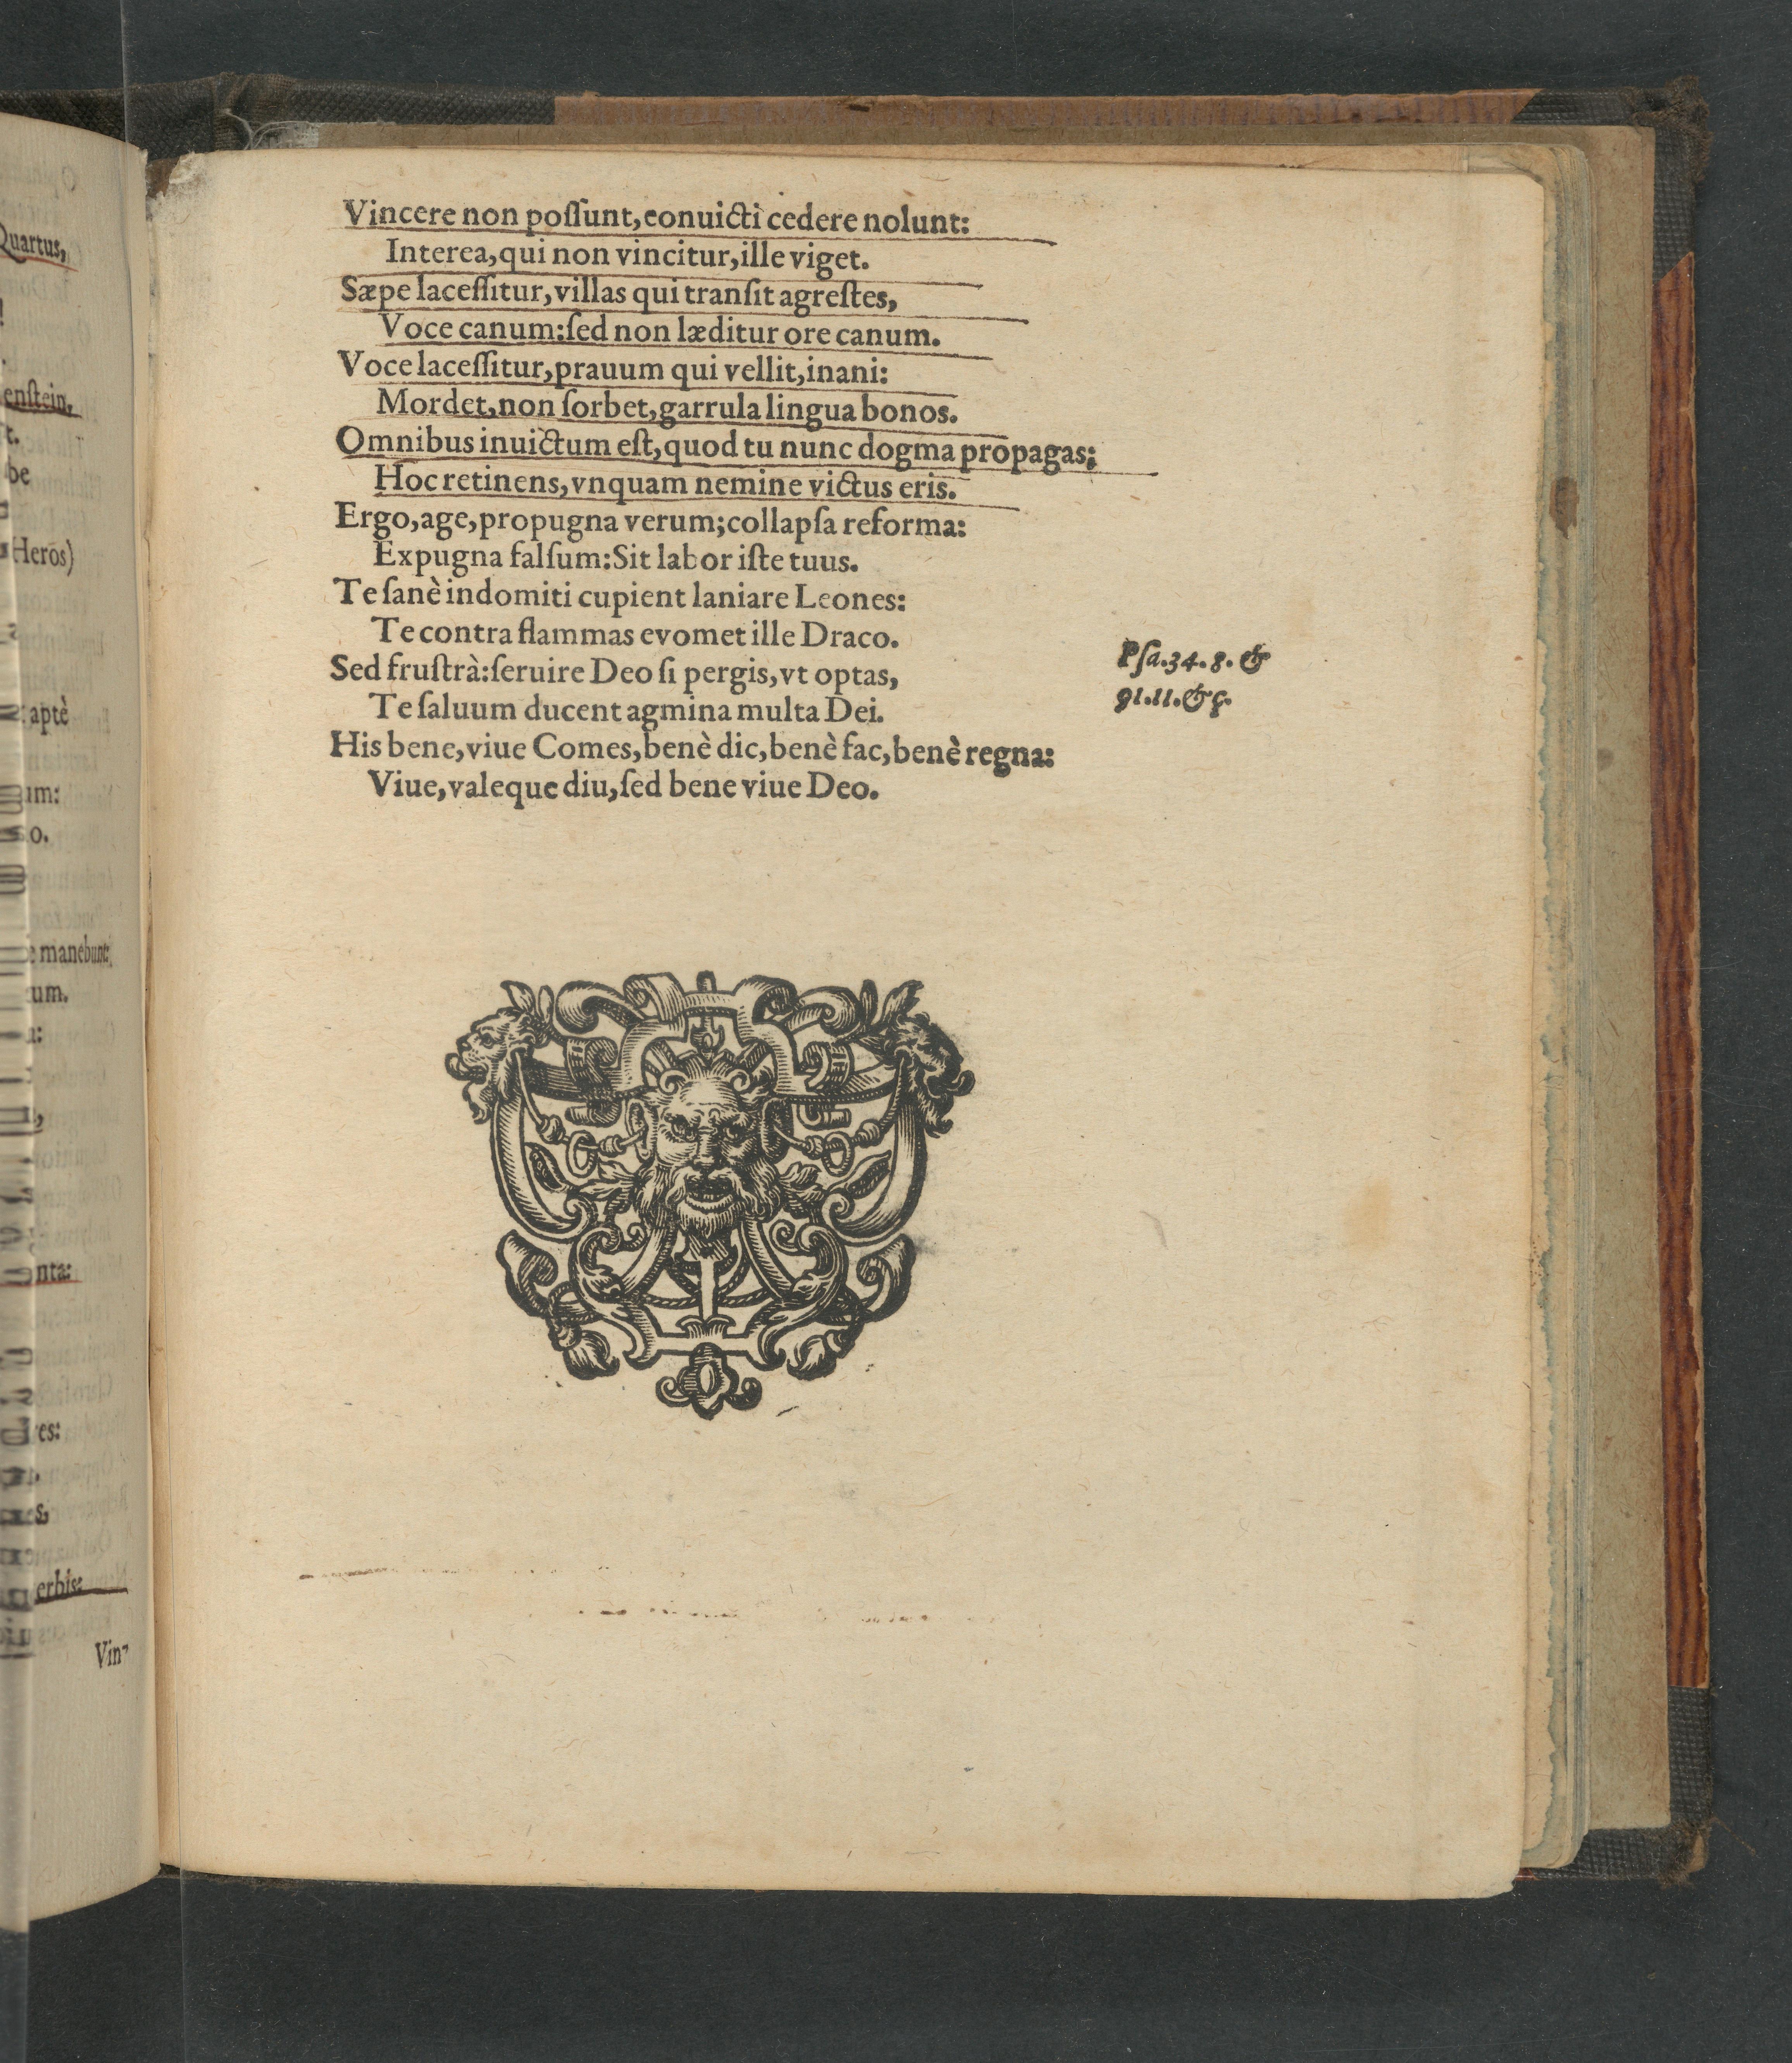 Quartus,
enſtein,
be
Herōs)
aptè
manebunt:
Vin-
Vincere non poſſunt, conuicti cedere nolunt:
Interea, qui non vincitur, ille viget.
Sæpe laceſſitur, villas qui tranſit agreſtes,
Voce canum: ſed non læditur ore canum.
Voce laceſſitur, prauum qui vellit, inani:
Mordet, non ſorbet, garrula lingua bonos.
Omnibus inuictum eſt, quod tu nunc dogma propagas;
Hoc retinens, vnquam nemine victus eris.
Ergo, age, propugna verum; collapſa reforma:
Expugna falſum: Sit labor iſte tuus.
Te ſanè indomiti cupient laniare Leones:
Te contra flammas evomet ille Draco.
Sed fruſtrà: ſeruire Deo ſi pergis, vt optas,
Pſa. 34. 8. &
Te ſaluum ducent agmina multa Dei.
91. 11. & ç.
His bene, viue Comes, benè dic, benè fac, benè regna:
Viue, valeque diu, ſed bene viue Deo.